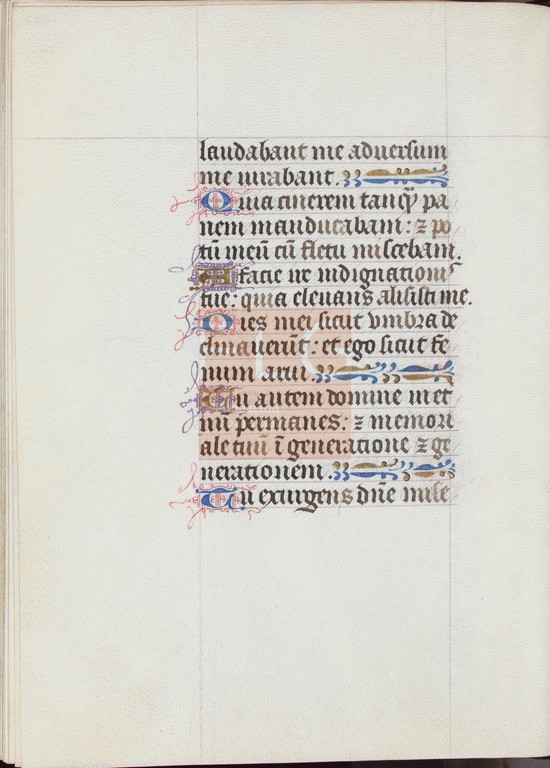 laudabant me adversum
me iurabant.
Quia cinerem tanq̃ pa
nem manducabam: ⁊ po
tũ meũ cũ fletu miscebam.
A facie ire indignationis
tue: quia elevans alisisti me.
Dies mei sicut umbra de
clinaverũt: et ego sicut fe
num arui.
Tu autem domine in et
nũ permanes: ⁊ memori
ale tuũ ĩ generatione ⁊ ge
nerationem.
Tu exurgens dñe mise